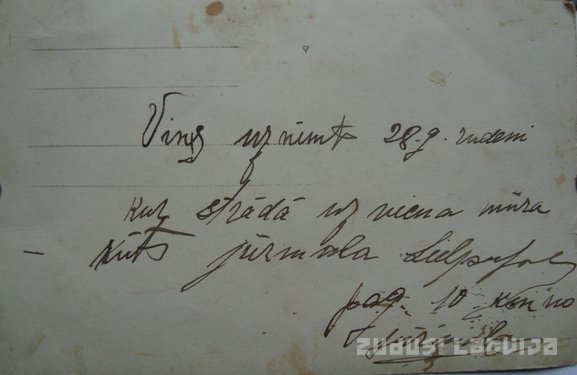 Viņš uzņemts 28.g. rudenī
kur strādā uz viena mūra
– kūts jūrmala
pag. 10 km no
ZUDUSI LATVIJA